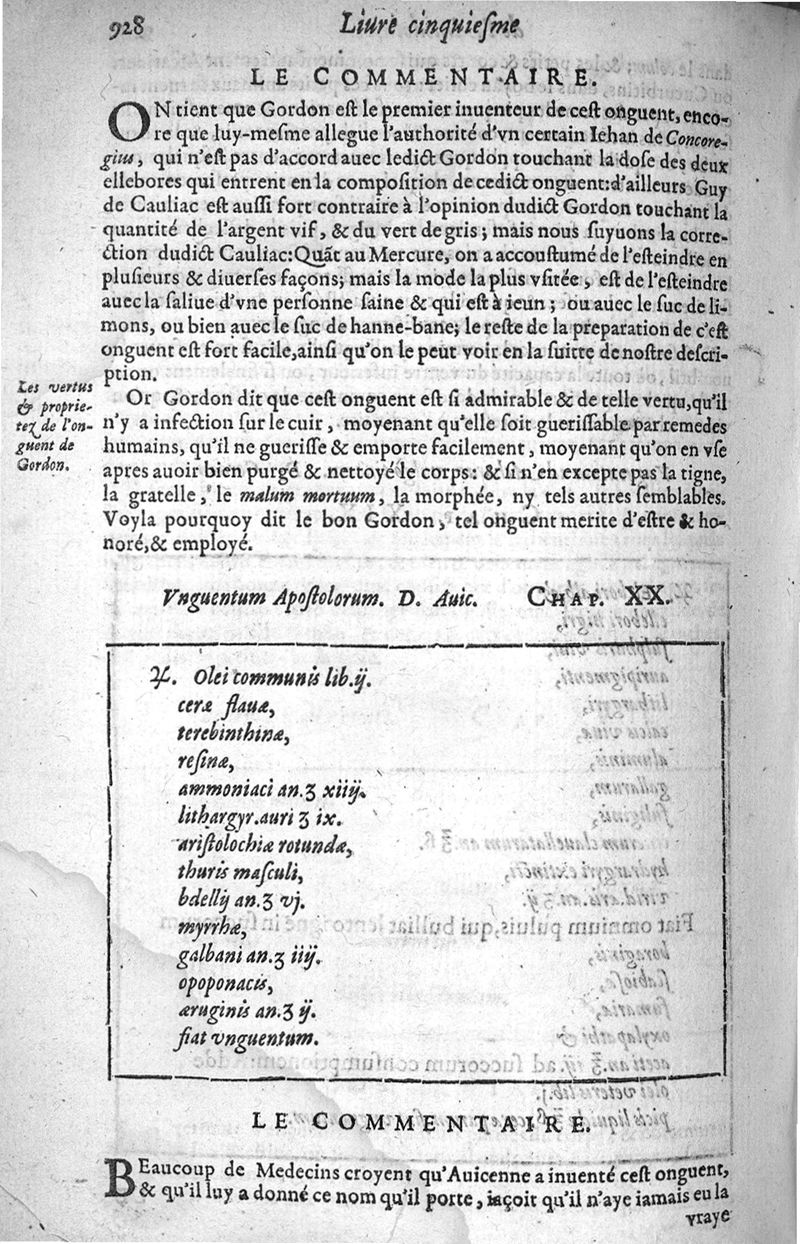 928 Liure cinquiesme
LE COMMENTAIRE.
ON tient que Gordon est le premier inuenteur de cest onguent, enco-
re que luy-mesme allegue l'authorité d'vn certain Iehan de Concore-
gius, qui n'est pas d'accord auec ledict Gordon touchant la dose des deux
ellebores qui entrent en la composition de cedict onguent: d'ailleurs Guy
de Cauliac est aussi fort contraire à l'opinion dudict Gordon touchant la
quantité de l'argent vif, & du vert de gris; mais nous suyuons la corre-
ction dudict Cauliac: Quãt au Mercure, on a accoustumé de l'esteindre en
plusieurs & diuerses façons; mais la mode la plus vsitée, est de l'esteindre
auec la saliue d'vne personne saine & qui est à ieun; ou auec le suc de li-
mons, ou bien auec le suc de hanne-bane; le reste de la preparation de c'est
onguent est fort facile, ainsi qu'on le peut voir en la suitte de nostre descri-
ption.
Les vertus
& proprie-
tez de l'on-
guent de
Gordon.
Or Gordon dit que cest onguent est si admirable & de telle vertu, qu'il
n'y a infection sur le cuir, moyenant qu'elle soit guerissable par remedes
humains, qu'il ne guerisse & emporte facilement, moyenant qu'on en vse
apres auoir bien purgé & nettoyé le corps: & si n'en excepte pas la tigne,
la gratelle, le malum mortuum, la morphée, ny tels autres semblables.
Voyla pourquoy dit le bon Gordon, tel onguent merite d'estre & ho-
noré, & employé.
Vnguentum Apostolorum. D. Auic. CHAP. XX.
℞. Olei communis lib. ij.
ceræ flauæ,
terebinthinæ,
resinæ,
ammoniaci an. ʒ xiiij.
lithargyr. auri ʒ ix.
aristolochiæ rotundæ,
thuris masculi,
bdellij an. ʒ vj.
myrrhæ,
galbani an. ʒ iiij.
opoponacis,
æruginis an. ʒ ij.
fiat vnguentum.
LE COMMENTAIRE.
BEaucoup de Medecins croyent qu'Auicenne a inuenté cest onguent,
& qu'il luy a donné ce nom qu'il porte, iaçoit qu'il n'aye iamais eu la
vraye